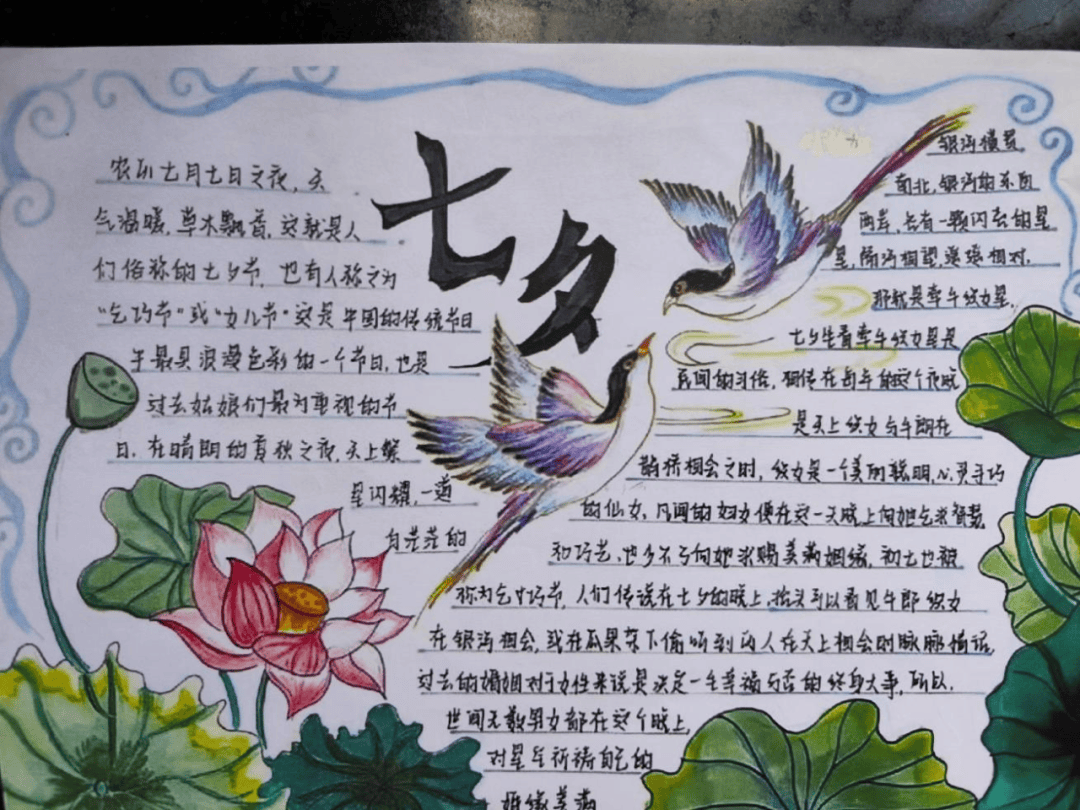 七夕
农历七月七日之夜，天
气温暖，草木飘香，这就是人
们俗称的七夕节，也有人称之为
“乞巧节”或“女儿节”这是中国的传统节日
中最具浪漫色彩的一个节日，也是
过去姑娘们最为重视的节
日，在晴朗的夏秋之夜，天上繁
星闪耀，一道
白茫茫的
银河横贯
南北，银河的东西
两岸，各有一颗闪亮的星
星，隔河相望，遥遥相对，
那就是牵牛织女星，
七夕坐看牵牛织女星是
民间的习俗，相传在每年的这个夜晚
是天上织女与牛郎在
鹊桥相会之时，织女是一个美丽聪明，心灵手巧
的仙女，凡间的妇女便在这一天晚上向她乞求智慧
和巧艺，也少不了向她求赐美满姻缘，初七也被
称为乞巧节，人们传说在七夕的晚上，抬头可以看见牛郎织女
在银河相会，或在瓜果架下偷听到两人在天上相会时脉脉情话，
过去的婚姻对于女性来说是决定一生幸福与否的终身大事，所以，
世间无数男女都在这个晚上，
对星空祈祷自己的
姻缘美满